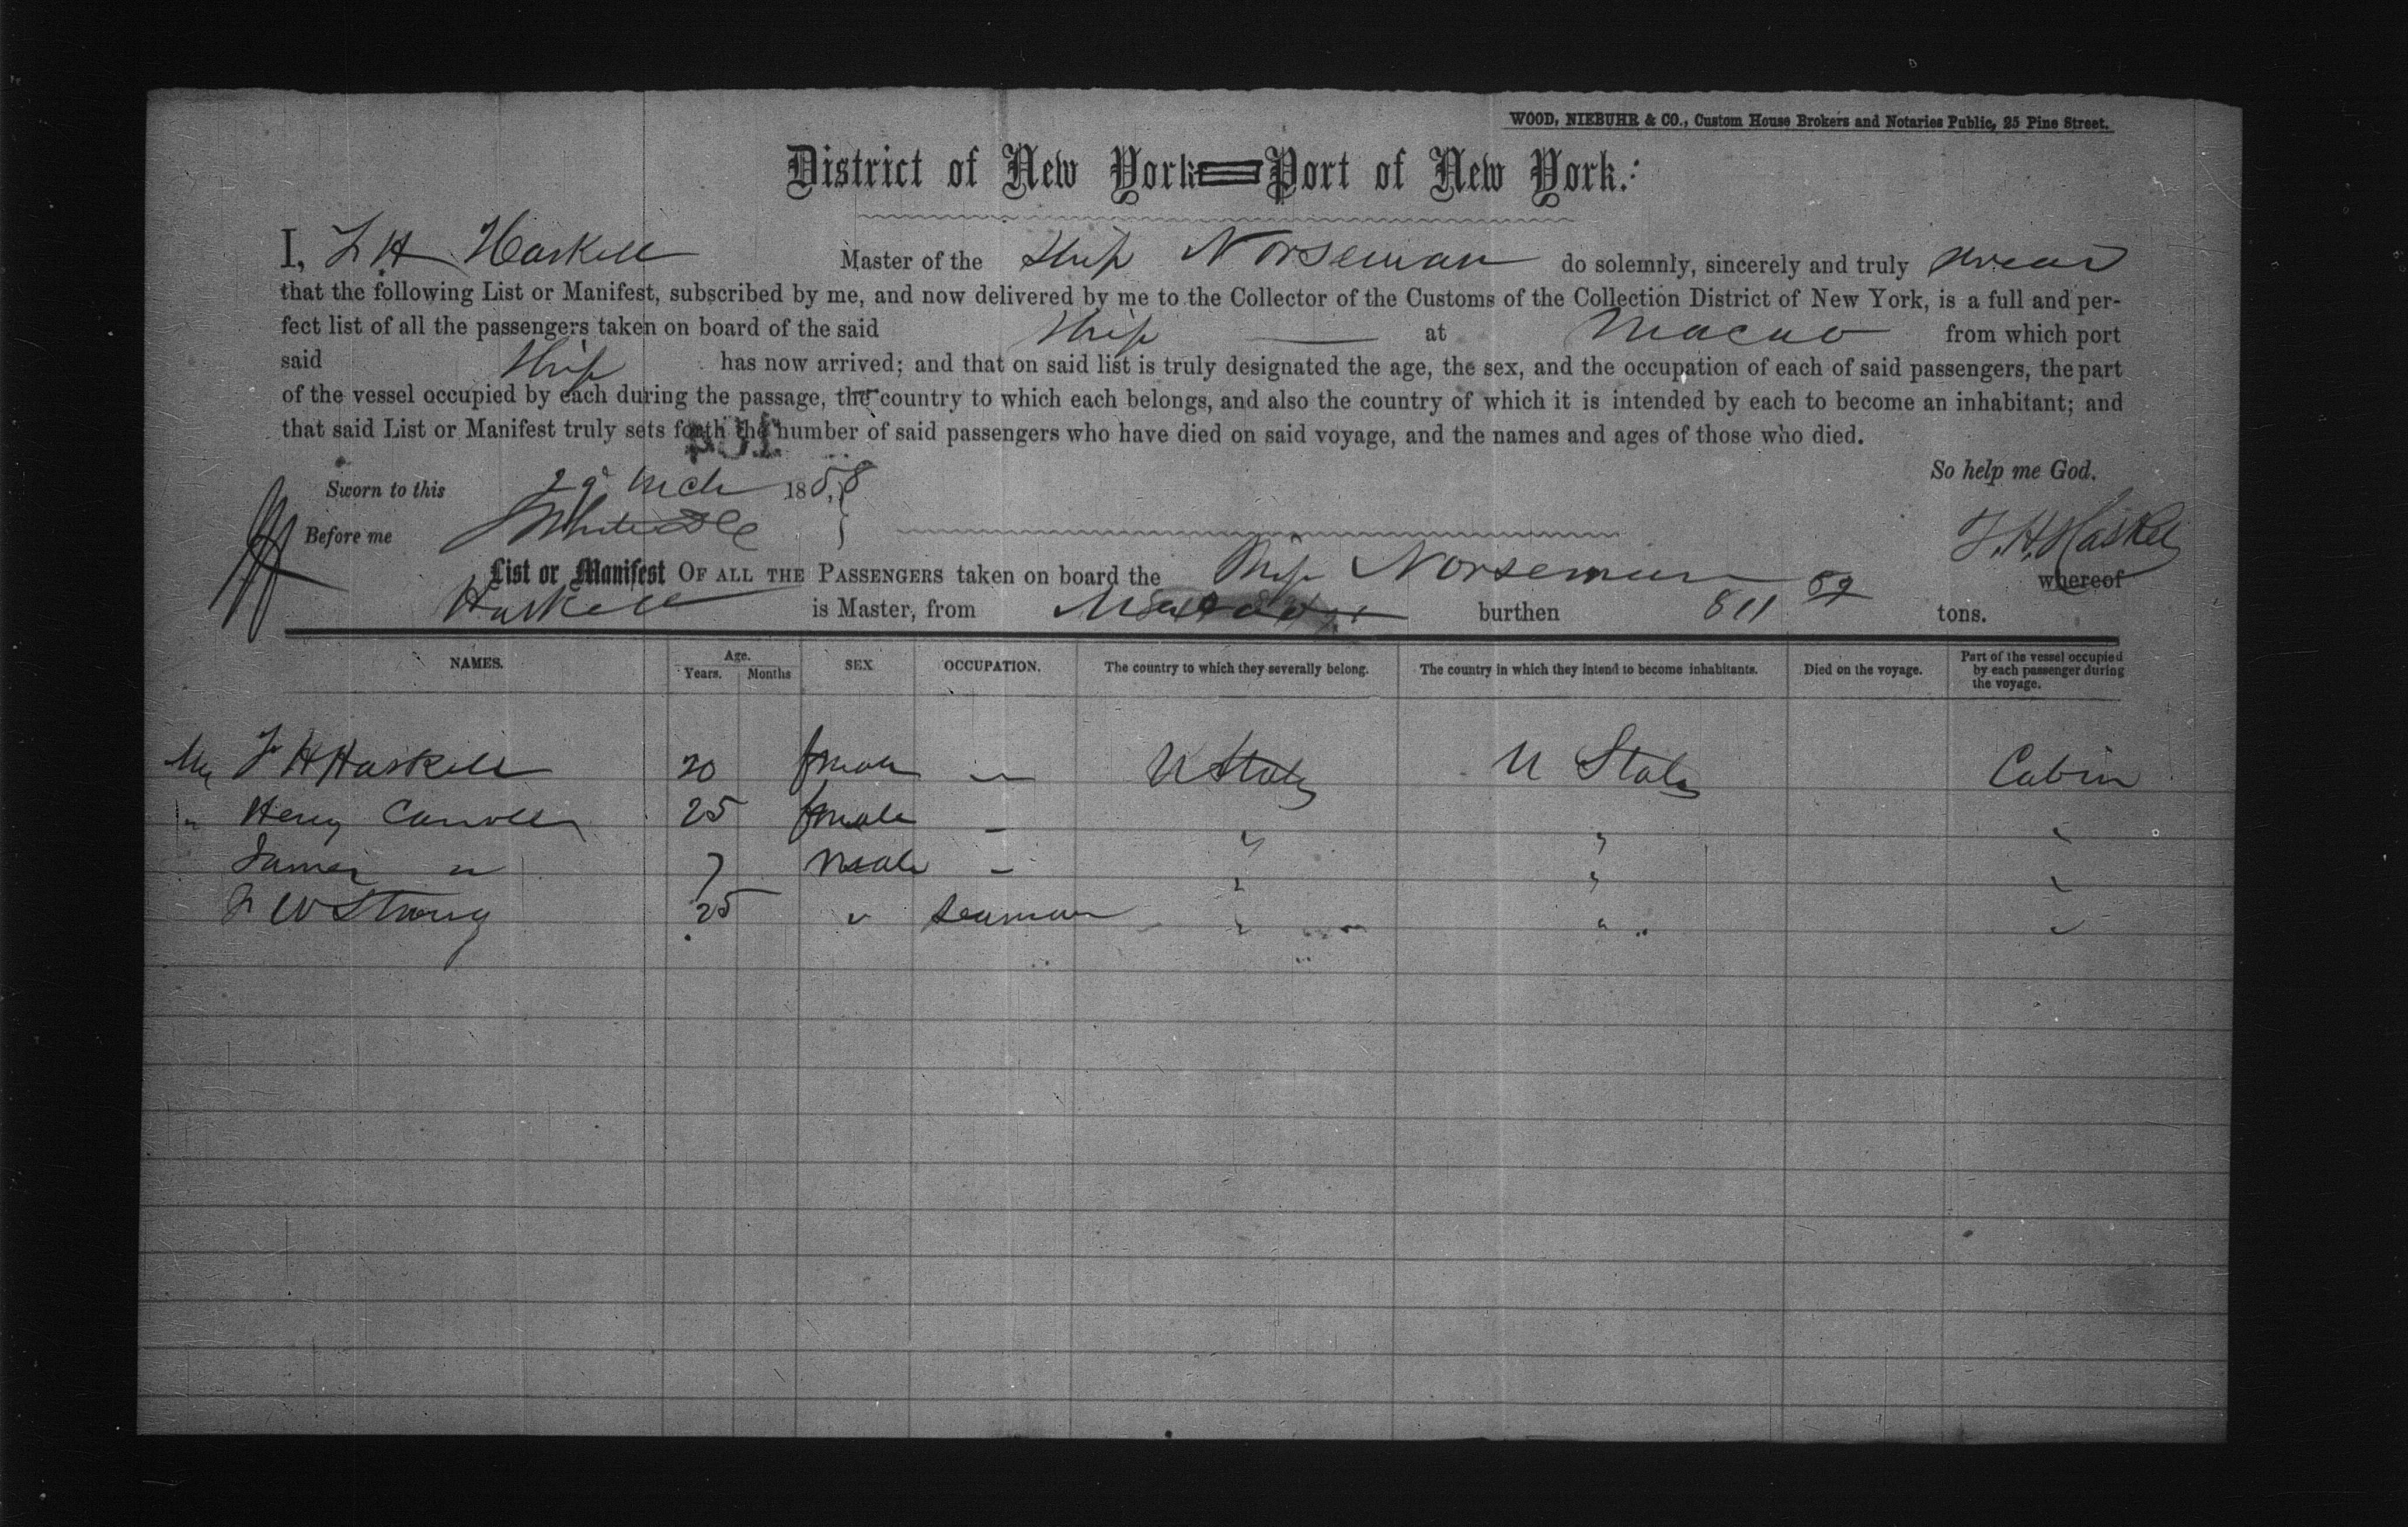 WOOD, NIEBUHR & CO., Custom House Brokers and Notaries Public, 25 Pine Street.
District of New York—Port of New York.
I, F H Haskell Master of the Ship Norseman do solemnly, sincerely and truly swear
that the following List or Manifest, subscribed by me, and now delivered by me to the Collector of the Customs of the Collection District of New York, is a full and per-
fect list of all the passengers taken on board of the said Ship at Macao from which port
said Ship has now arrived; and that on said list is truly designated the age, the sex, and the occupation of each of said passengers, the part
of the vessel occupied by each during the passage, the country to which each belongs, and also the country of which it is intended by each to become an inhabitant; and
that said List or Manifest truly sets forth the number of said passengers who have died on said voyage, and the names and ages of those who died.
So help me God.
Sworn to this 29 Mch 1858
Before me F. H. Haskell
List or Manifest OF ALL THE PASSENGERS taken on board the Ship Norseman whereof
Haskell is Master, from burthen 811 tons.
NAMES. Age. Years. Months SEX OCCUPATION. The country to which they severally belong. The country in which they intend to become inhabitants. Died on the voyage. Part of the vessel occupied by each passenger during the voyage.
Mrs F H Haskell 20 female — U States U States Cabin
" Henry Carroll 25 female - " " "
James " 7 male - " " "
F W Strong 25 " seaman " " "